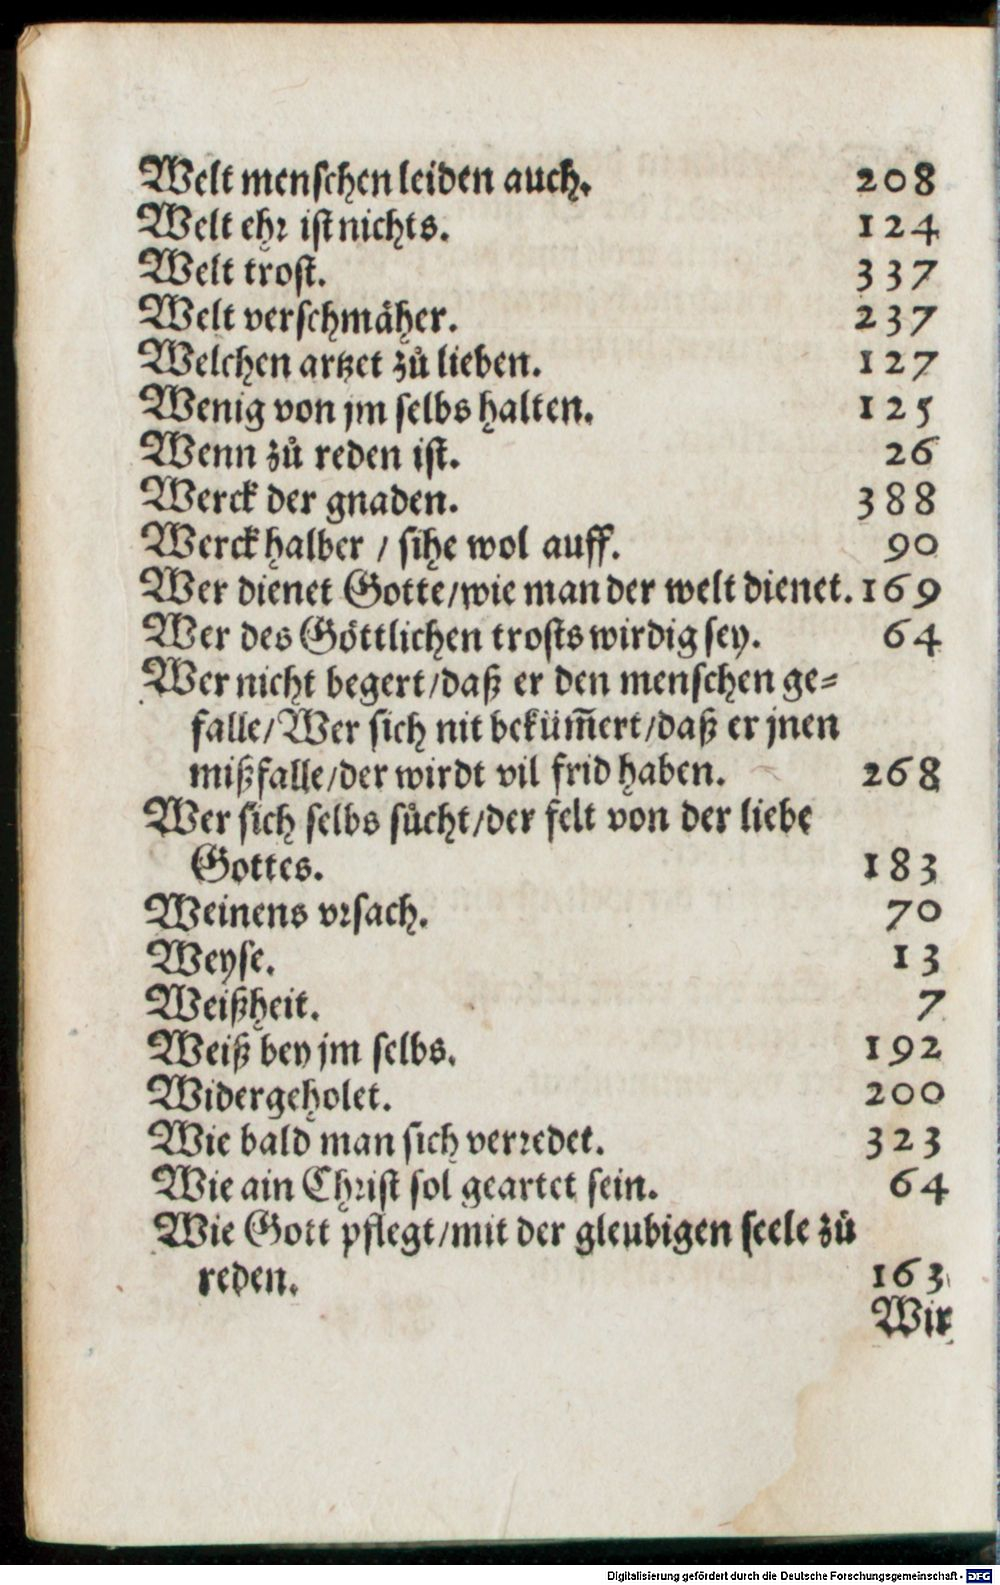 Welt menschen leiden auch. 208
Welt ehr ist nichts. 124
Welt trost. 337
Welt verschmäher. 237
Welchen artzet zů lieben. 127
Wenig von jm selbs halten. 125
Wenn zů reden ist. 26
Werck der gnaden. 388
Werck halber / sihe wol auff. 90
Wer dienet Gotte/wie man der welt dienet. 169
Wer des Göttlichen trosts wirdig sey. 64
Wer nicht begert/daß er den menschen ge=
falle/Wer sich nit bekům̃ert/daß er jnen
mißfalle/der wirdt vil frid haben. 268
Wer sich selbs sůcht/der felt von der liebe
Gottes. 183
Weinens vrsach. 70
Weyse. 13
Weißheit. 7
Weiß bey jm selbs. 192
Widergeholet. 200
Wie bald man sich verredet. 323
Wie ain Christ sol geartet sein. 64
Wie Gott pflegt/mit der gleubigen seele zů
reden. 163
Wir
Digitalisierung gefördert durch die Deutsche Forschungsgemeinschaft - DFG